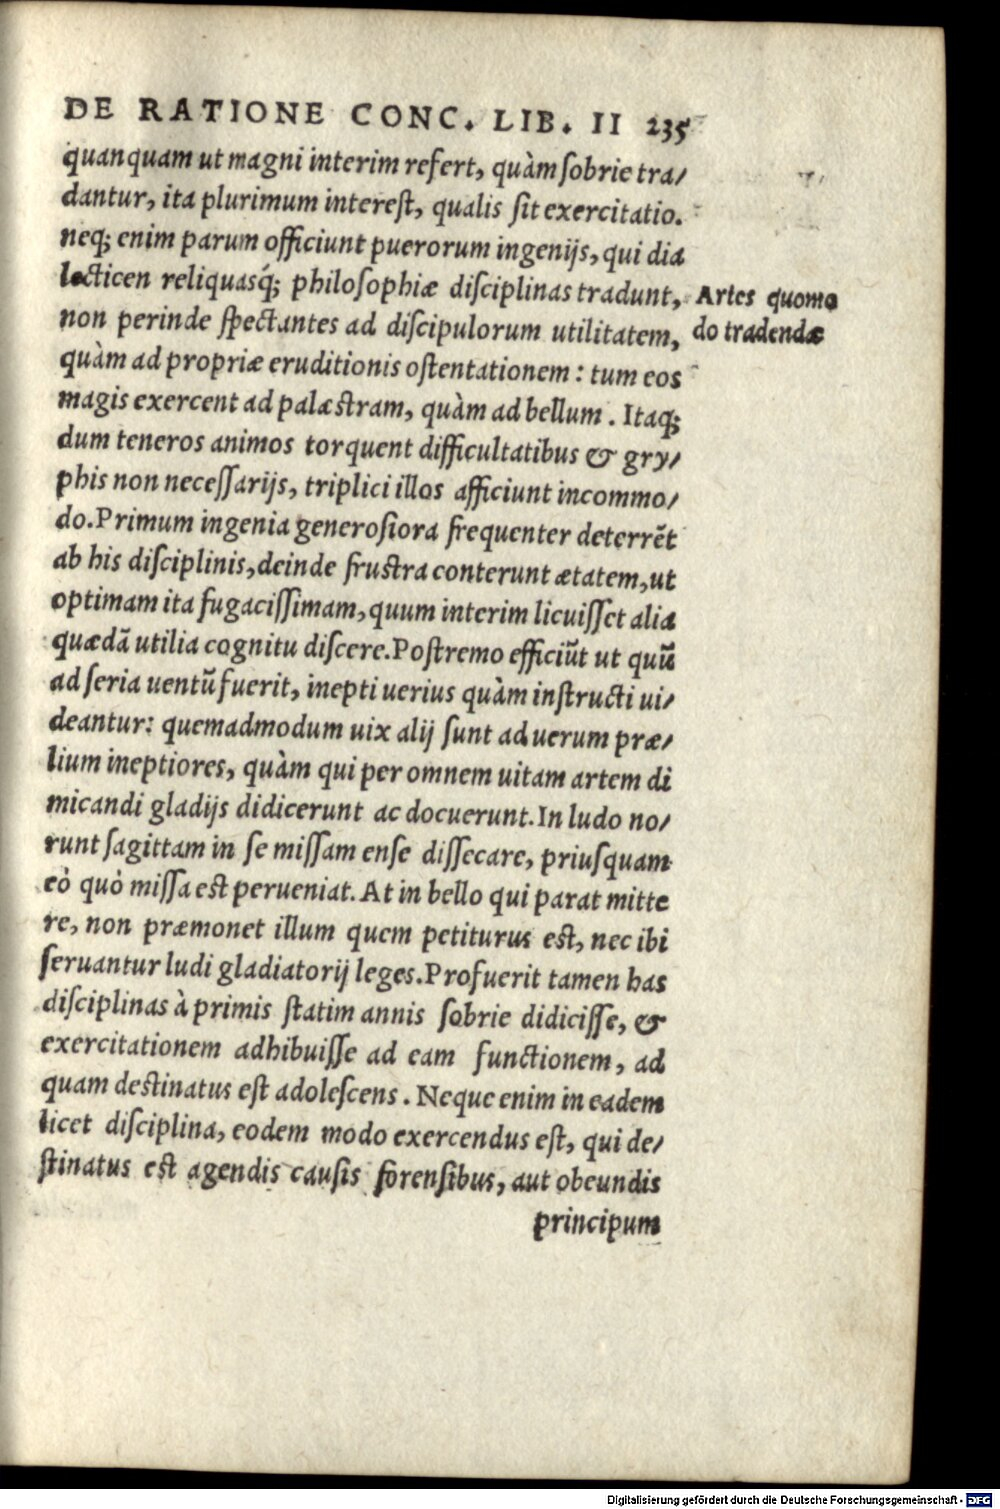 DE RATIONE CONC. LIB. II 235
quanquam ut magni interim refert, quàm ſobrie tra/
dantur, ita plurimum intereſt, qualis ſit exercitatio.
neq; enim parum officiunt puerorum ingenijs, qui dia
lecticen reliquasq́; philoſophiæ diſciplinas tradunt,
Artes quomo
non perinde ſpectantes ad diſcipulorum utilitatem,
do tradendæ
quàm ad propriæ eruditionis oſtentationem: tum eos
magis exercent ad palæſtram, quàm ad bellum. Itaq;
dum teneros animos torquent difficultatibus & gry/
phis non neceſſarijs, triplici illos afficiunt incommo/
do. Primum ingenia generoſiora frequenter deterrẽt
ab his diſciplinis, deinde fruſtra conterunt ætatem, ut
optimam ita fugaciſſimam, quum interim licuiſſet alia
quædã utilia cognitu diſcere. Poſtremo efficiũt ut quũ
ad ſeria uentũ fuerit, inepti uerius quàm inſtructi ui/
deantur: quemadmodum uix alij ſunt ad uerum præ/
lium ineptiores, quàm qui per omnem uitam artem di
micandi gladijs didicerunt ac docuerunt. In ludo no/
runt ſagittam in ſe miſſam enſe diſſecare, priuſquam
eò quò miſſa eſt perueniat. At in bello qui parat mitte
re, non præmonet illum quem petiturus eſt, nec ibi
ſeruantur ludi gladiatorij leges. Profuerit tamen has
diſciplinas à primis ſtatim annis ſobrie didiciſſe, &
exercitationem adhibuiſſe ad eam functionem, ad
quam deſtinatus eſt adoleſcens. Neque enim in eadem
licet diſciplina, eodem modo exercendus eſt, qui de/
ſtinatus eſt agendis cauſis forenſibus, aut obeundis
principum
Digitalisierung gefördert durch die Deutsche Forschungsgemeinschaft - DFG